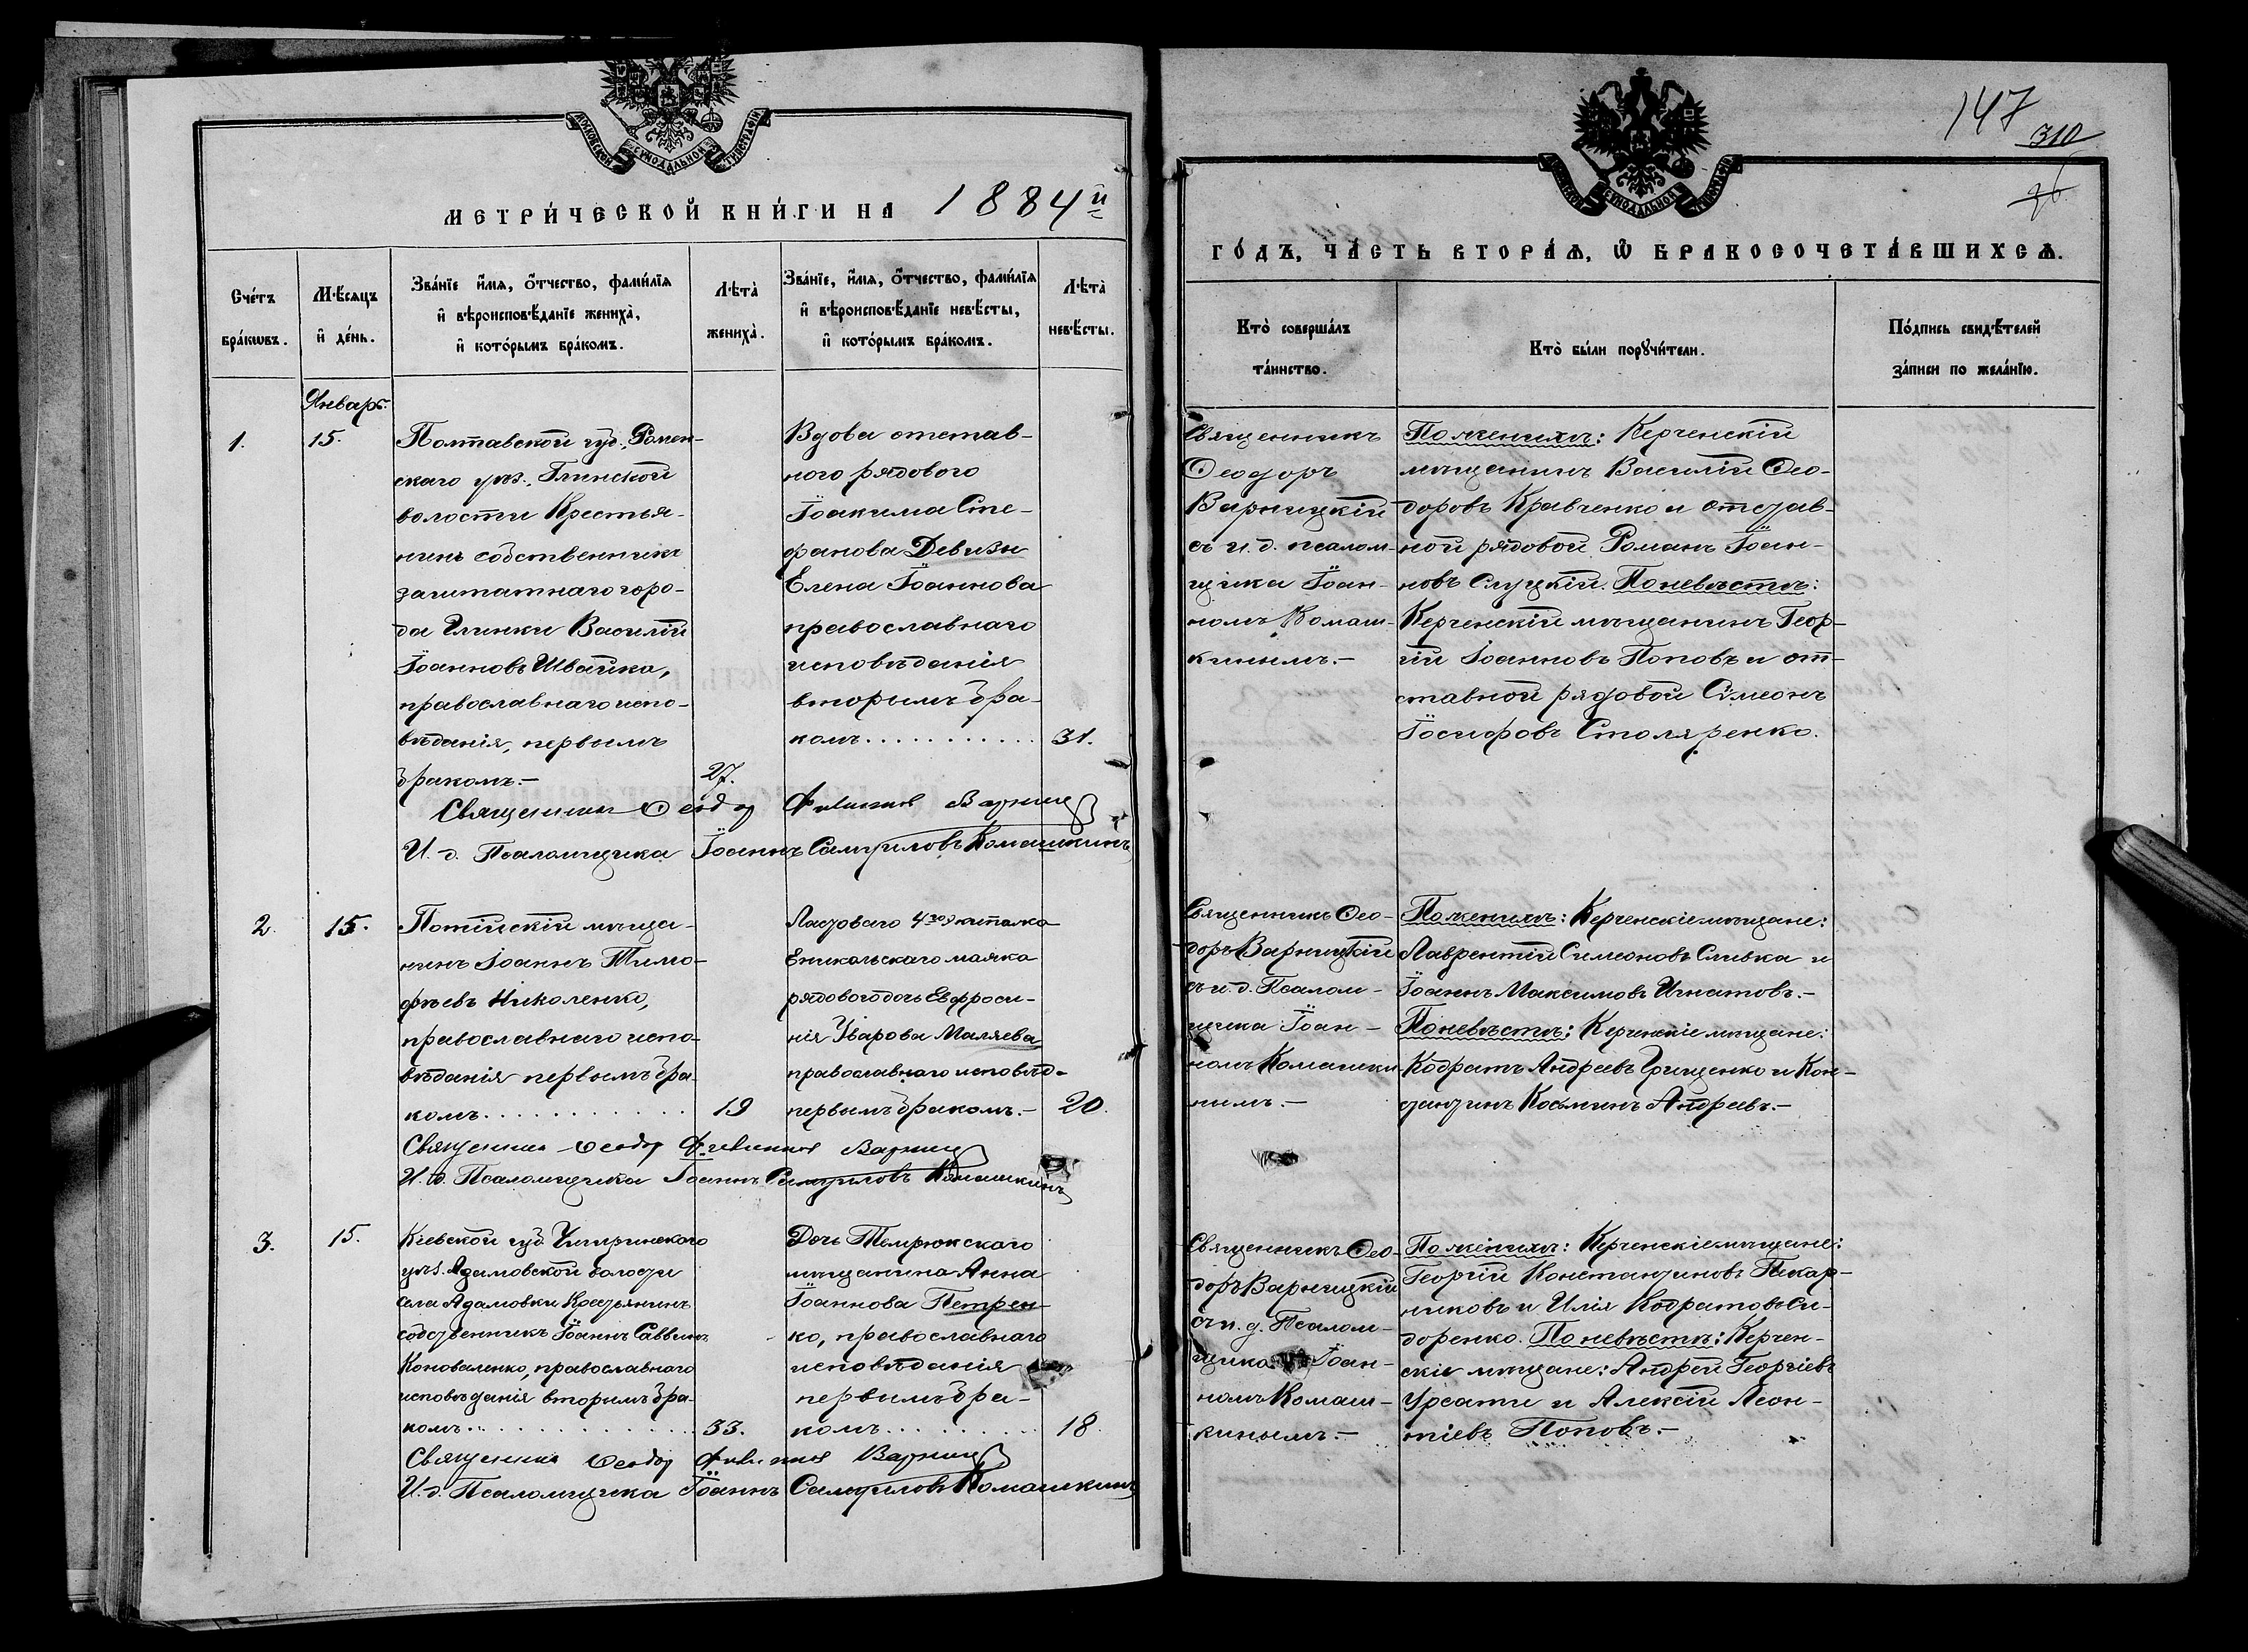 МОСКОВСКОЙ СѴНОДАЛЬНОЙ ТИПОГРАФІИ
МЕТРИ́ЧЕСКОЙ КНИ́ГИ НА 1884й
Сче́тъ бра́кωвъ.
Мѣ́сяцъ и҆ де́нь.
Зва́нїе и҆́мя, ѻ҆́тчество, фами́лїя
и҆ вѣроисповѣ́данїе жениха̀,
и҆ кото́рымъ бра́комъ.
Лѣта̀ жениха̀.
Зва́нїе, и҆́мя, ѻ҆́тчество, фами́лїя
и҆ вѣроисповѣ́данїе невѣ́сты,
и҆ кото́рымъ бра́комъ.
Лѣта̀ невѣ́сты.
Январь.
1.
15.
Полтавской губ., Ромен-
скаго уѣз., Глинской
волости Крестья-
нинъ собственникъ
заштатнаго горо-
да Глинки Василій
Іоанновъ Швайка,
православнаго испо-
вѣданія, первымъ
бракомъ.-
27.
Вдова отстав-
ного рядового
Іоакима Сте-
фанова Девизы
Елена Іоаннова
православнаго
исповѣданія
вторымъ бра-
комъ...........
31.
Священникъ Ѳеодор Варниц
И. д. Псаломщика Іоаннъ Комашкинъ
2.
15.
Потійскій мѣща-
нинъ Іоаннъ Тимо-
фѣевъ Николенко,
православнаго испо-
вѣданія первымъ бра-
комъ...........
19
Ластоваго 4го экипажа
Еникольскаго маяка
рядового дочь Евфроси-
нія Уварова Маляева
православнаго исповѣд-
первымъ бракомъ.-
20.
Священникъ Ѳеодор Варниц
И. д. Псаломщика Іоаннъ Комашкинъ
3.
15.
Кіевской губ. Чигиринскаго
уѣз. Адамовской волости
села Адамовки Крестьянинъ
собственникъ Іоаннъ Саввинъ
Коноваленко, православнаго
исповѣданія вторымъ бра-
комъ.............
33.
Дочь Темрюкскаго
мѣщанина Анна
Іоаннова Петрен-
ко, православнаго
исповѣданія
первымъ бра-
комъ..........
18.
Священникъ Ѳеодор Варниц
И. д. Псаломщика Іоаннъ Комашкинъ
147
310
МОСКОВСКОЙ СѴНОДАЛЬНОЙ ТИПОГРАФІИ
ГО́ДЪ, ЧА́СТЬ ВТОРА́Я, Ѽ БРАКОСОЧЕТА́ВШИХСЯ.
Кто̀ соверша́лъ
та́инство.
Кто̀ бы́ли порꙋчи́тели.
По́дпись свидѣ́телей
за́писи по жела́нїю.
Священникъ
Ѳеодоръ
Варницкій
съ и. д. псалом-
щика Іоан-
номъ Комаш-
кинымъ.-
По женихѣ: Керченскій
мѣщанинъ Василій Ѳео-
доровъ Кравченко и отстав-
ной рядовой Романъ Іоан-
новъ Слуцкій. По невѣстѣ:
Керченскій мѣщанинъ Геор-
гій Іоанновъ Поповъ и от-
ставной рядовой Сѵмеонъ
Іосифовъ Столяренко.
Священникъ Ѳео-
доръ Варницкій
съ и. д. Псалом-
щика Іоан-
номъ Комашки-
нымъ.-
По женихѣ: Керченскіе мѣщане:
Лаврентій Симеоновъ Сливка и
Іоаннъ Максимовъ Игнатовъ.-
По невѣстѣ: Керченскіе мѣщане:
Кодратъ Андреевъ Грищенко и Кон-
стантинъ Косьминъ Андреевъ.-
Священникъ Ѳео-
доръ Варницкій
съ и. д. Псалом-
щика Іоан-
номъ Комаш-
кинымъ.-
По женихѣ: Керченскіе мѣщане:
Георгій Константиновъ Пекар-
никовъ и Илія Кодратовъ Си-
доренко. По невѣстѣ: Керчен-
скіе мѣщане: Андрей Георгіевъ
Урсати и Алексій Леон-
тіевъ Поповъ.-